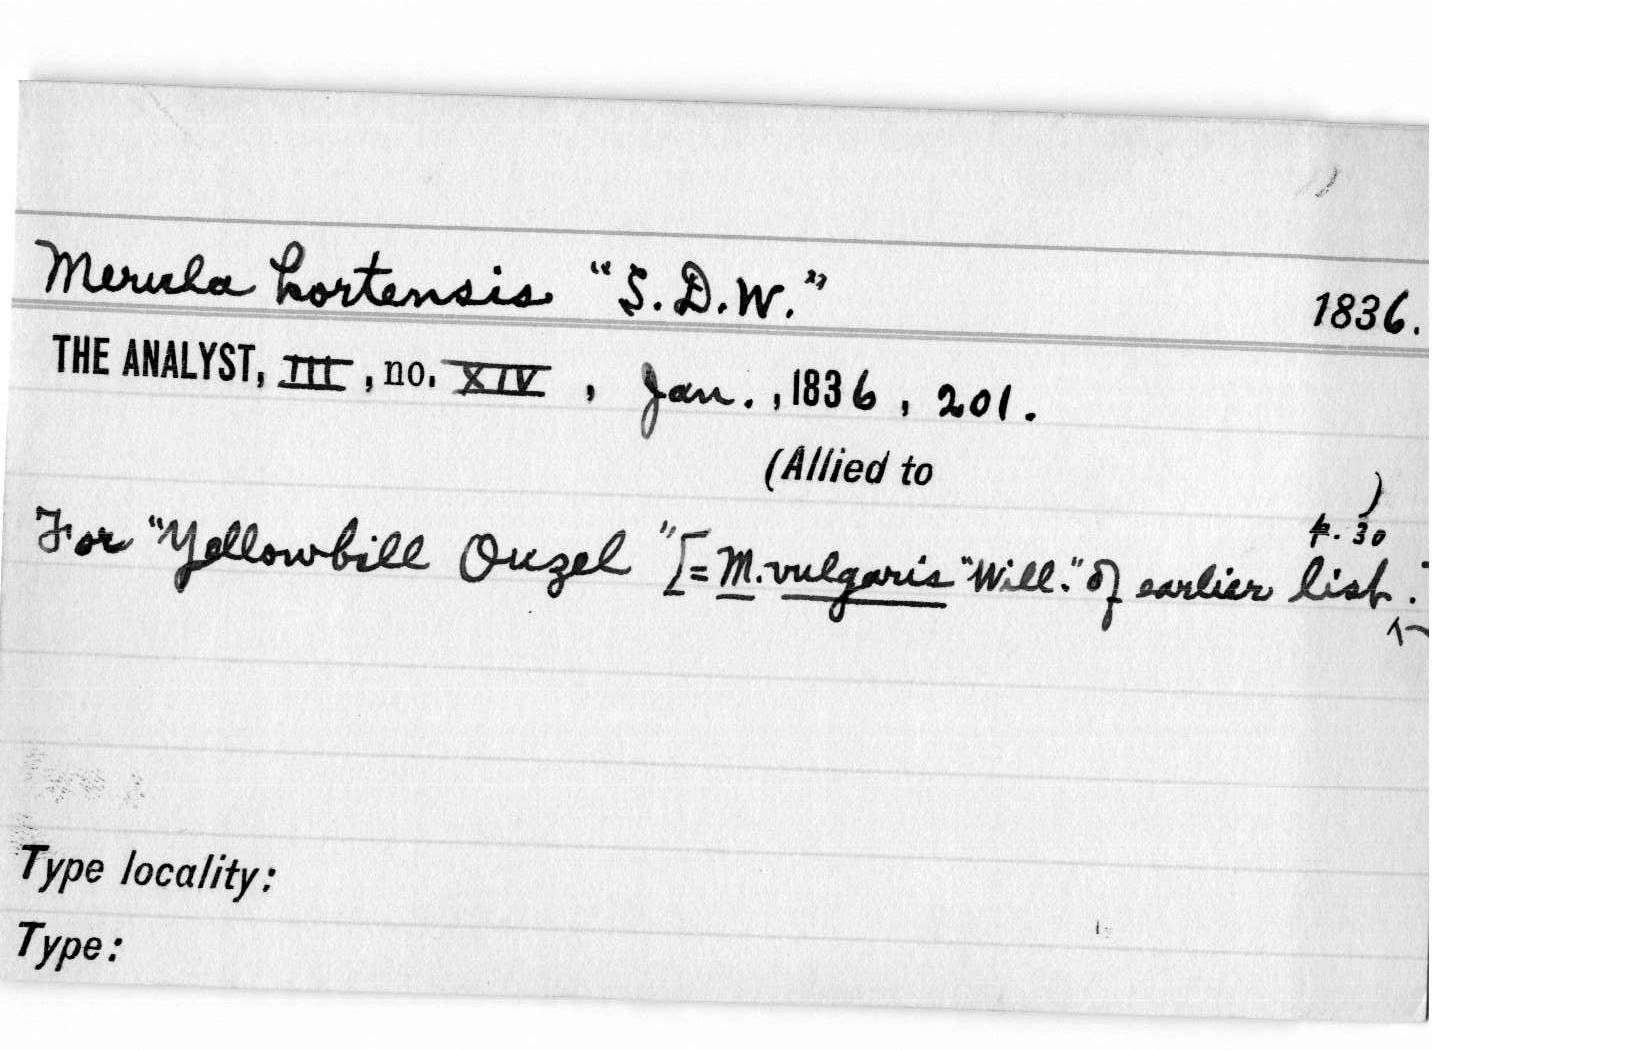 Merula hortensis "S.D.W." 1836.
THE ANALYST, III, no. XIV, Jan., 1836, 201.
(Allied to )
p. 30
For "Yellowbill Ouzel" [= M. vulgaris "Will." of earlier list.
Type locality:
Type: